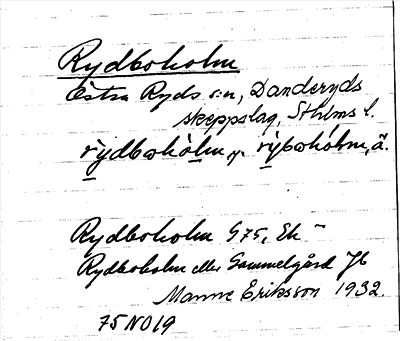 Rydboholm
Östra Ryds s:n, Danderyds
skeppslag, Sthlms l.
rydboholm, rybohólm, ä.
Rydboholm G75, Ek
Rydboholm eller Gammelgård Jb
Manne Eriksson 1932.
75 NO 19